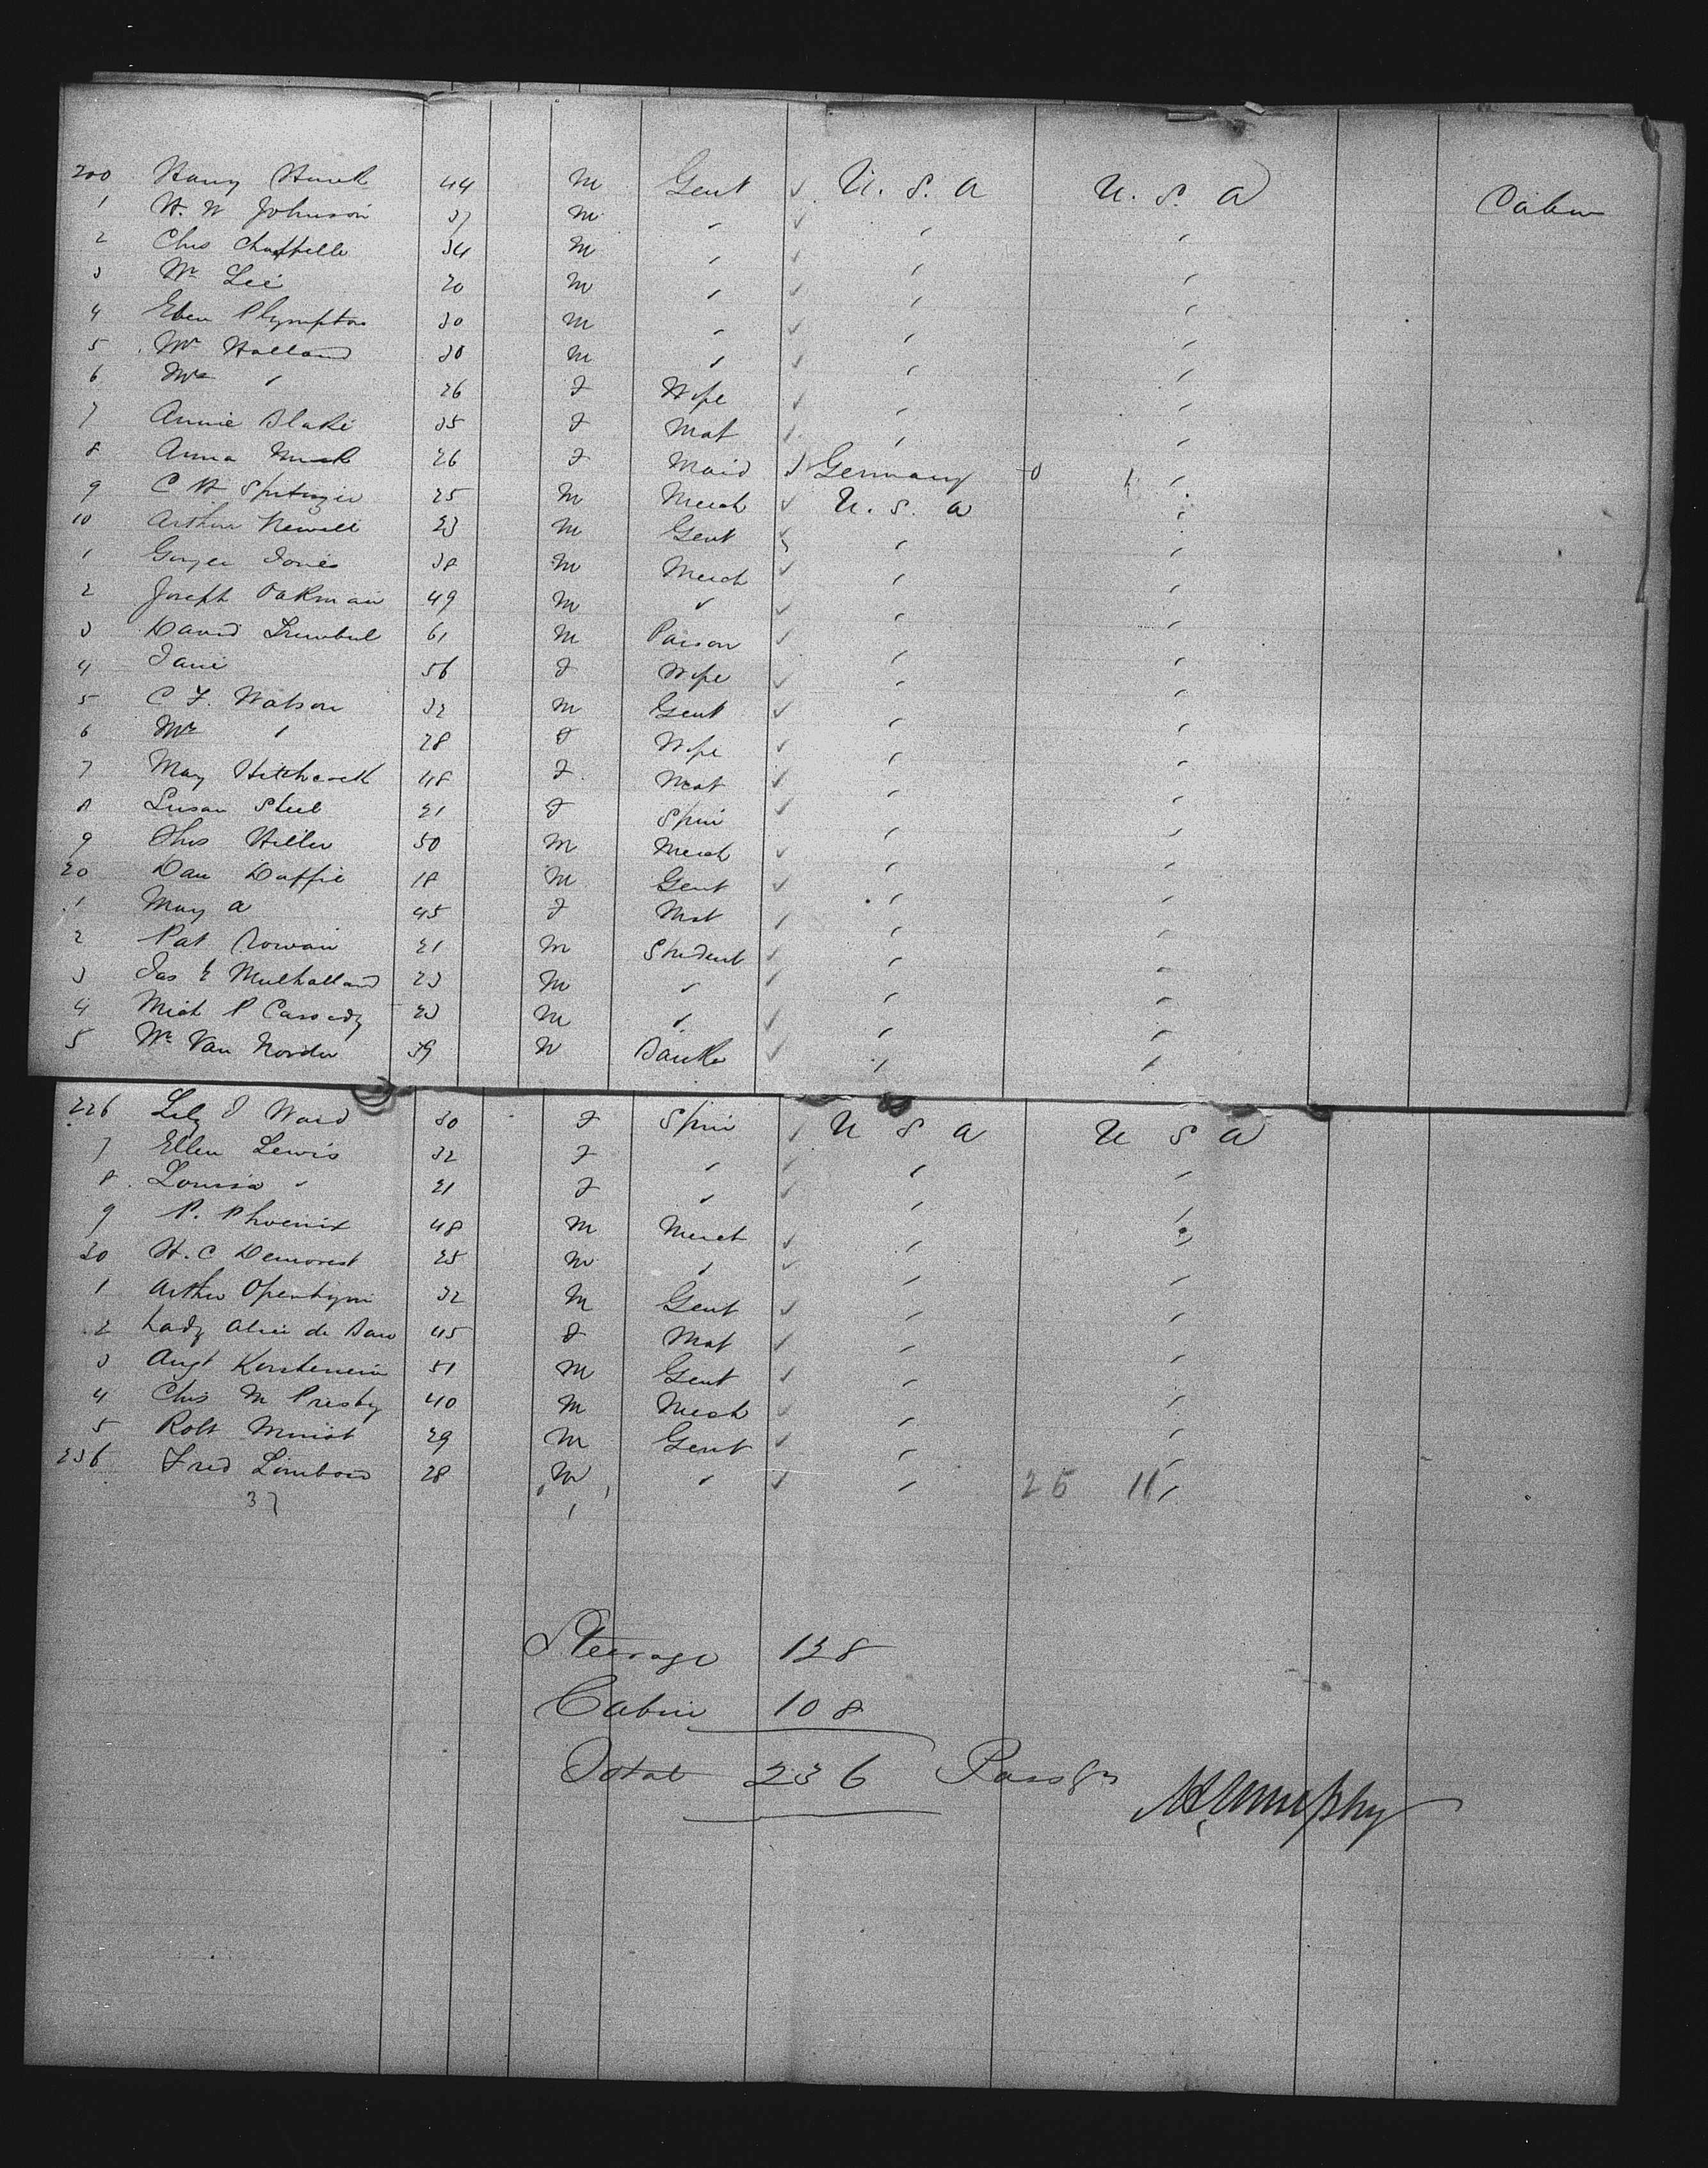 200 Harry 44 M Gent ✓ U. S. A U. S. A Cabin
1 H. W Johnson 37 M " ✓ " "
2 Chas Chappelle 34 M " ✓ " "
3 Wm Lee 20 M " ✓ " "
4 Eben Plympton 30 M " ✓ " "
5 Mr Holland 30 M " ✓ " "
6 Mrs " 26 F Wife ✓ " "
7 Annie Blake 35 F Mat ✓ " "
8 Anna 26 F Maid ✓ Germany 0 1 "
9 C H 25 M Merch ✓ U. S. A "
10 Arthur Newell 23 M Gent ✓ " "
1 Jones 38 M Merch ✓ " "
2 Joseph Oakman 49 M " ✓ " "
3 David Trumbul 61 M Parson ✓ " "
4 Jane 56 F Wife ✓ " "
5 C F. Watson 32 M Gent ✓ " "
6 Mrs " 28 F Wife ✓ " "
7 Mary Hitchcock 48 F Mat ✓ " "
8 Susan Steel 21 F Spin ✓ " "
9 Thos Hiller 50 M Merch ✓ " "
20 Dan Daffie 18 M Gent ✓ " "
1 Mary A 45 F Mat ✓ " "
2 Pat Rowan 21 M Student ✓ " "
3 Jas E Mulholland 23 M " ✓ " "
4 Mich P Cassedy 23 M " ✓ " "
5 Wm Van Norden 39 M Banker ✓ " "
226 Lily J Ward 30 F Spin ✓ U S A U S A
7 Ellen Lewis 32 F " ✓ " "
8 Louisa " 21 F " ✓ " "
9 P. Phoenix 48 M Merch ✓ " "
30 H. C Demorest 25 M " ✓ " "
1 Arthur Openhym 32 M Gent ✓ " "
2 Lady Alice de 45 F Mat ✓ " "
3 Augt 51 M Gent ✓ " "
4 Chas M Presby 40 M Merch ✓ " "
5 Robt 29 M Gent ✓ " "
236 Fred 28 M " ✓ " 25 11 "
37 1
Steerage 128
Cabin 108
Total 236 Passgrs